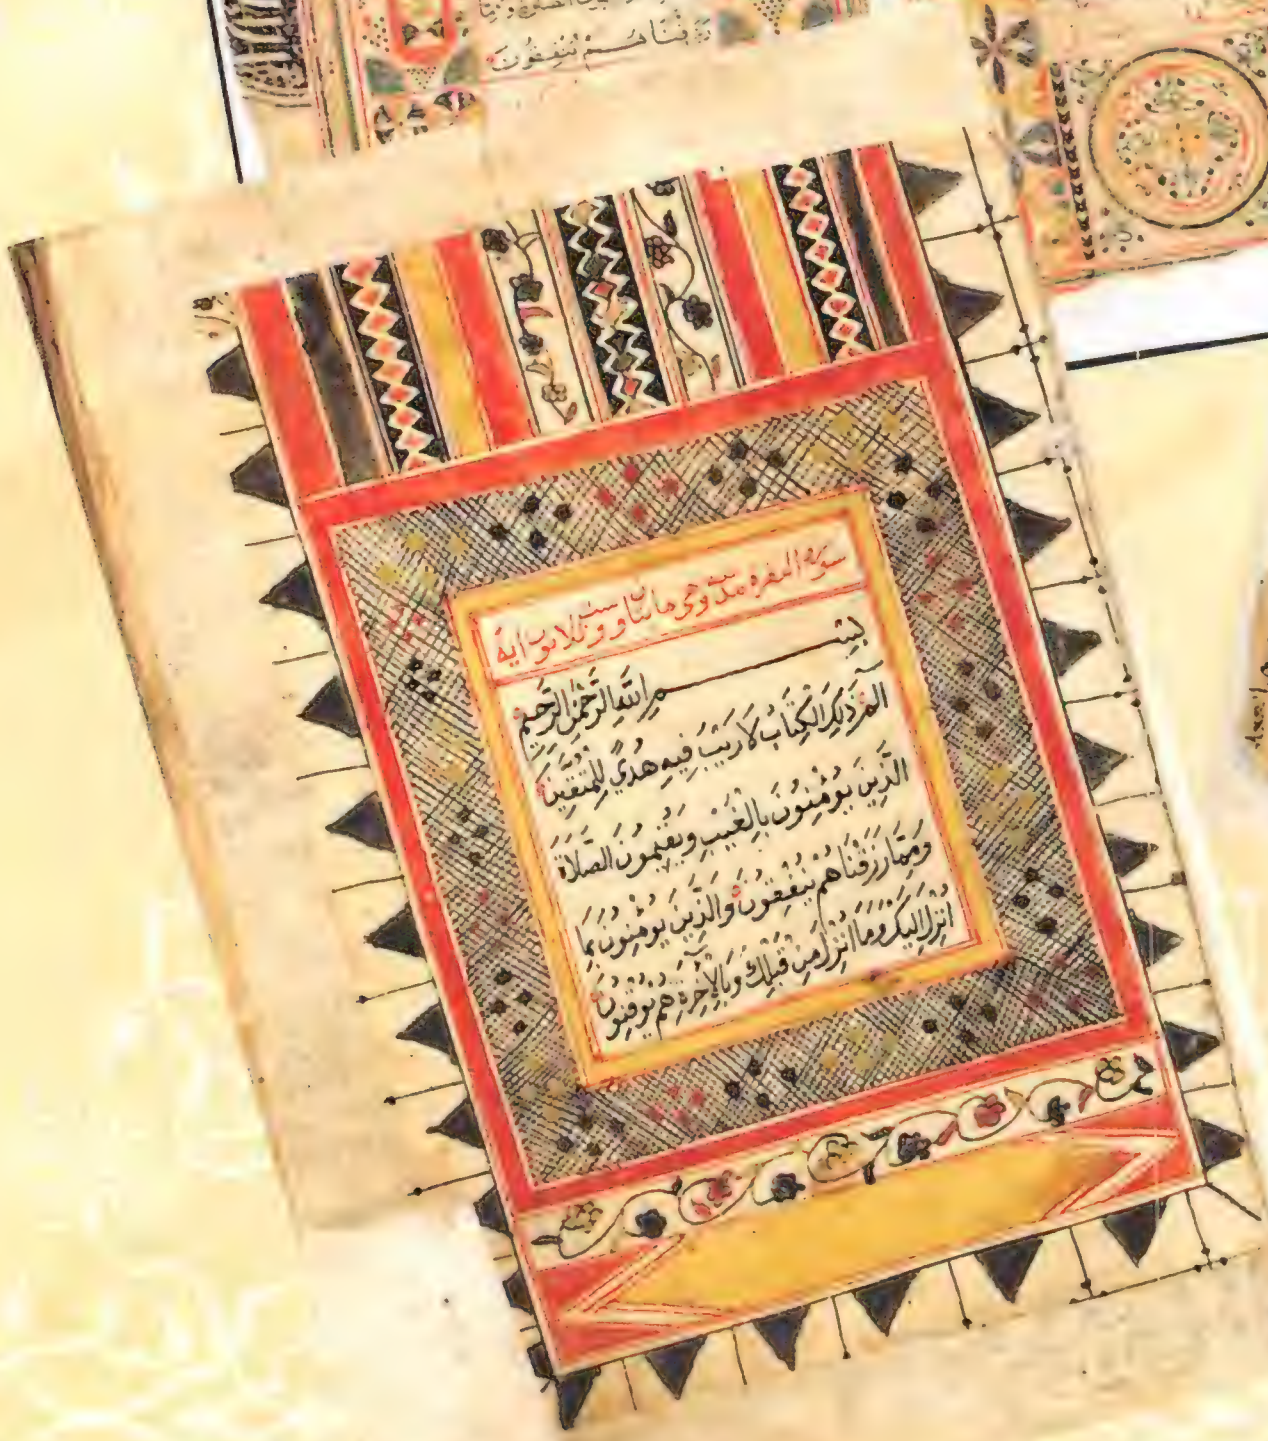 رزقناهم ينفقون
سورة البقرة مدنية وهي مايتان وست وثلاثون اية
بِسْمِ اللَّهِ الرَّحْمٰنِ الرَّحِيمِ
الٓمٓ ذٰلِكَ الْكِتَابُ لَا رَيْبَ فِيهِ هُدًى لِلْمُتَّقِينَ
الَّذِينَ يُؤْمِنُونَ بِالْغَيْبِ وَيُقِيمُونَ الصَّلَاةَ
وَمِمَّا رَزَقْنَاهُمْ يُنْفِقُونَ وَالَّذِينَ يُؤْمِنُونَ بِمَا
اُنْزِلَ اِلَيْكَ وَمَا اُنْزِلَ مِنْ قَبْلِكَ وَبِالْاٰخِرَةِ هُمْ يُوقِنُونَ